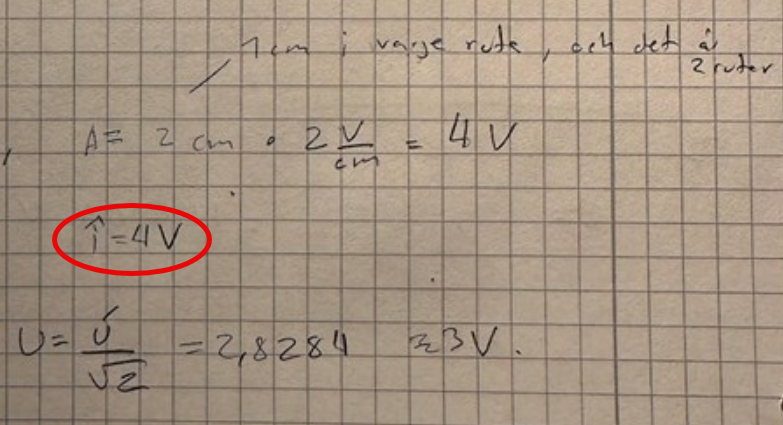 1 cm i varje ruta, och det är
2 rutor
A = 2 cm • 2 V/cm = 4 V
î = 4 V
U = û/√2 = 2,8284 ≈ 3 V.